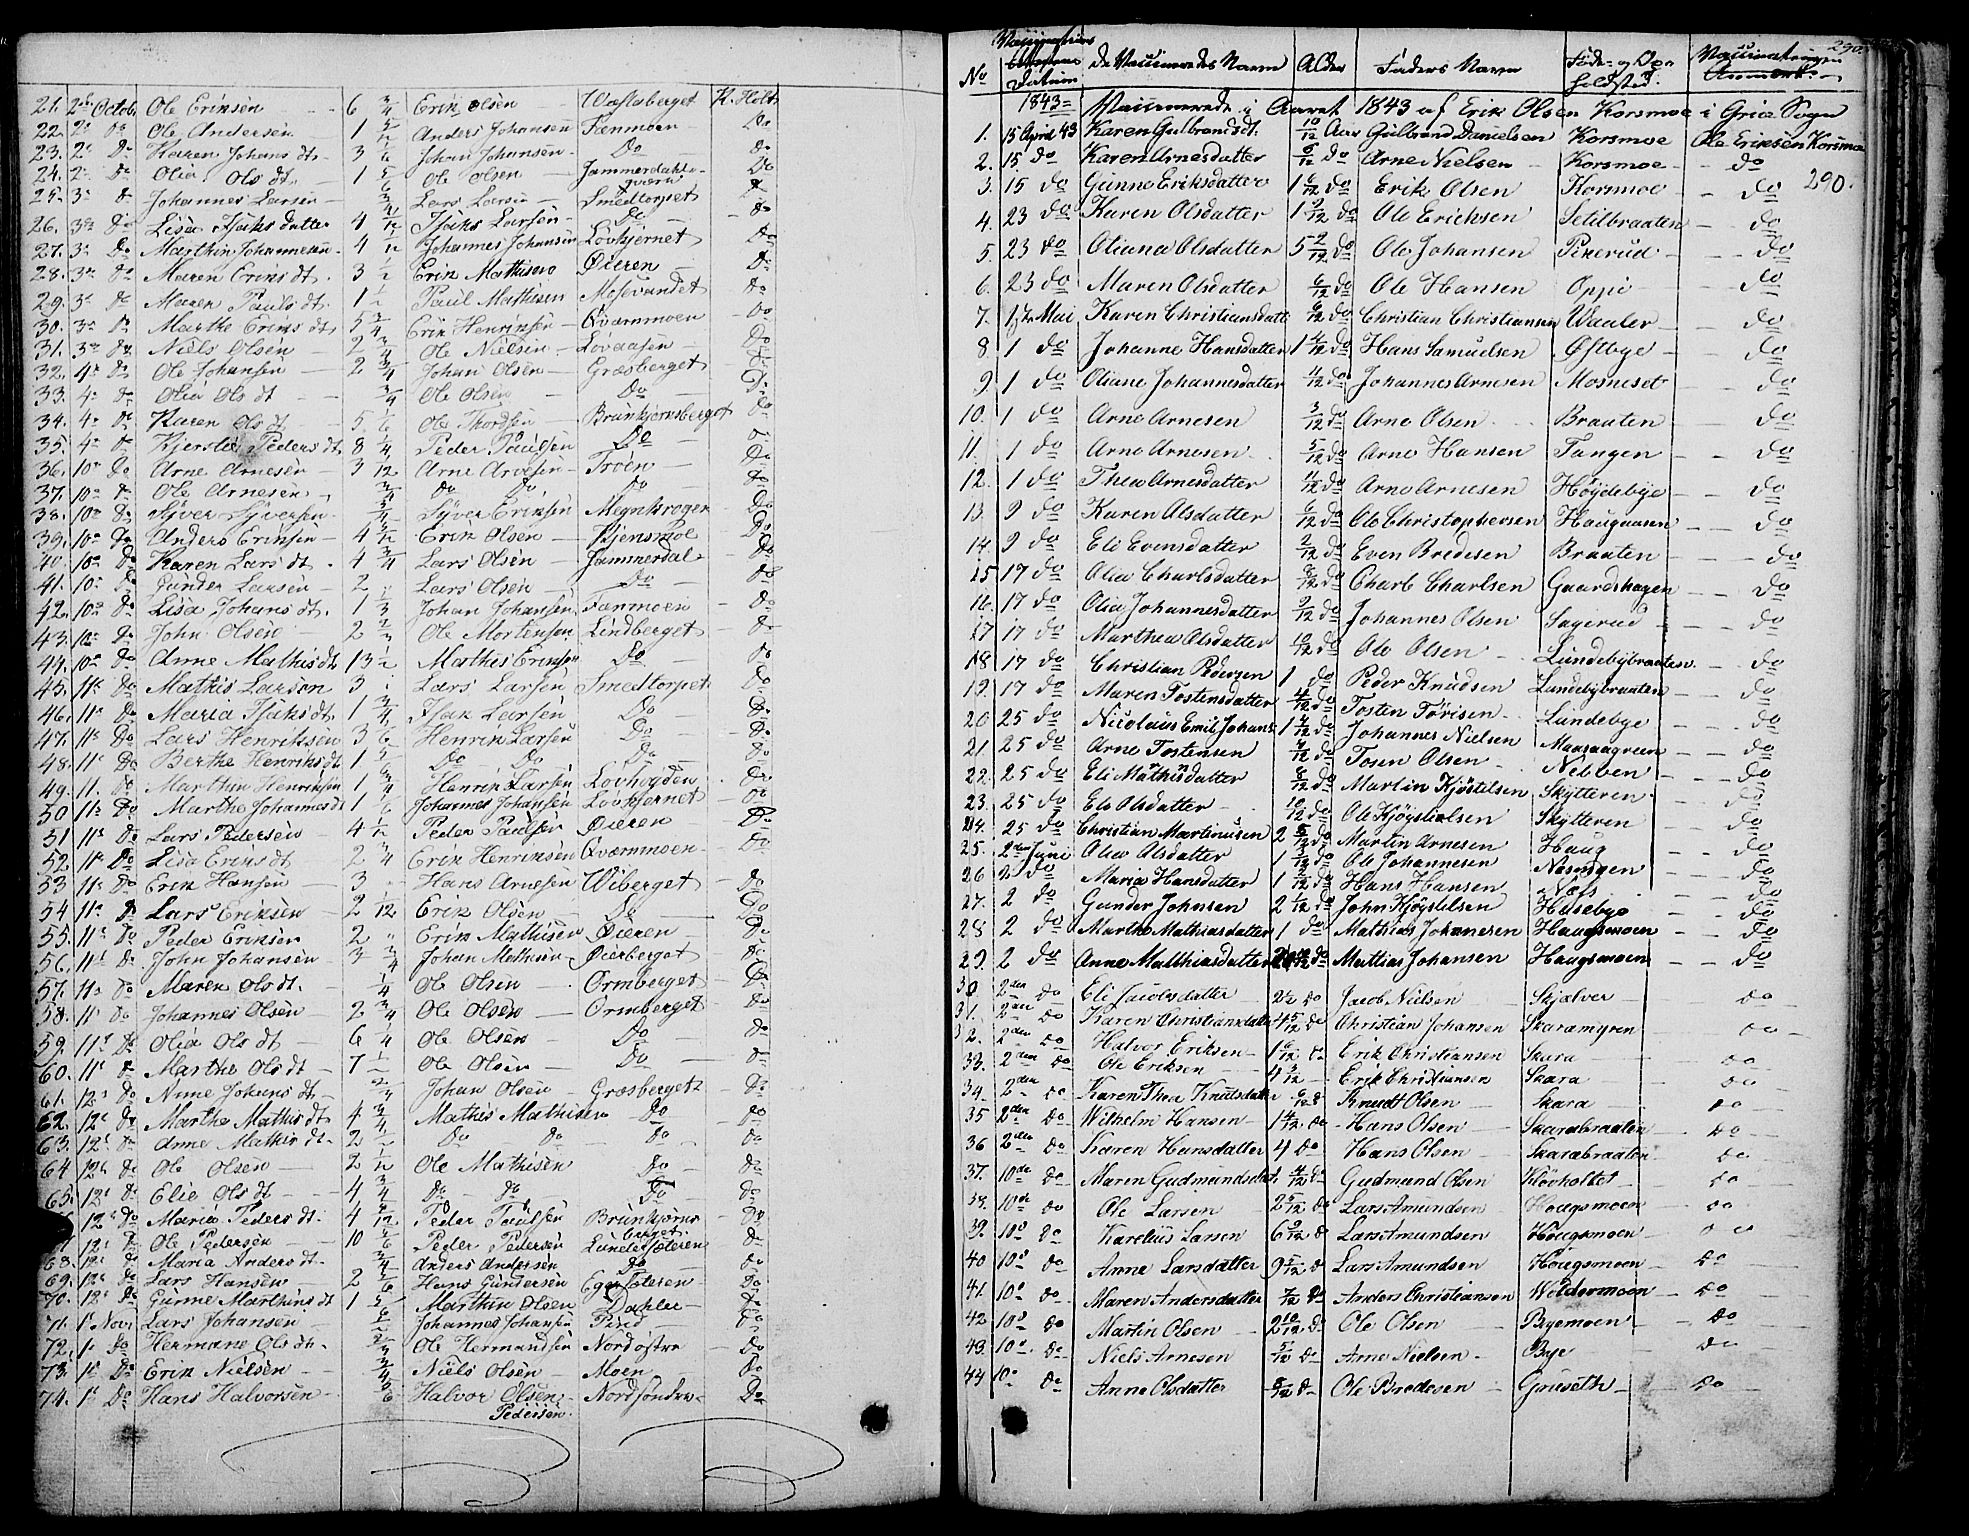 21. 2den Octob Ole Eriksen 6 3/4 Erik Olsen Wæstaberget K. Holt
22. 2. Do Ole Andersen 1 Anders Johansen Fænmoen Do
23. 2. Do Karen Johansdt. 3 Johan Johansen Do Do
24. 2. Do Olia Olsdt. 1 5/6 Ole Olsen Jammerdahls- Do
25. 3. Do Johannes Larsen Lars Larsen Smedtorpet
26. 3. Do Lisa Isaksdatter 4 Isaks Larsen Do Do
27. 3. Do Marthin Johannesen 4 Johannes Johansen Lovhjernet Do
28. 3. Do Maren Eriksdt. 3 Erik Mathisen Øieren Do
29. 3. Do Maren Paulsdt. 1 Paul Mathisen Mosevandet Do
30. 3. Do Marthe Eriksdt 5 3/4 Erik Henriksen Qværnmoen Do
31. 3. Do Niels Olsen 2 Ole Nielsen Lovaasen Do
32. 4. Do Ole Johansen 2 3/4 Johan Olsen Græsberget Do
33. 4. Do Olia Olsdt 3/4 Ole Olsen Do Do
34. 4. Do Karen Olsdt 5 1/6 Ole Thordsen Brunkjørnsberget Do
35. 4. Do Kjerstie Pedersdt. 8 1/4 Peder Paulsen Do Do
36. 10. Do Arne Arnesen 3 1/12 Arne Arnesen Troen Do
37. 10. Do Ole Arnesen 3/4 Do Do Do Do
38. 10. Do Syver Syversen Syver Eriksen Meynkroger Do
39. 10. Do Anders Eriksen 4 Erik Olsen Kjensmoe Do
40. 10. Do Karen Larsdt. 4 3/4 Lars Olsen Jammerdal Do
41. 10. Do Gunder Larsen 2 Lars Olsen Do Do
42. 10. Do Lisa Johansdt. 1 1/3 Johan Johansen Fænmoen Do
43. 10. Do John Olsen 2 2/3 Ole Mortensen Lindberget Do
44. 10. Do Anne Mathisdt 13 Mathis Eriksen Do Do
45. 11. Do Mathis Larsen 3 Lars Larsen Smedtorpet Do
46. 11. Do Maria Isaksdt. 1 3/4 Isak Larsen Do Do
47. 11. Do Lars Henriksen 3 Henrik Larsen Do Do
48. 11. Do Berthe Henriksdt 1 Do Do Do Do
49. 11. Do Marthin Henriksen 1 Henrik Larsen Lovhøyden Do
50 11. Do Marthe Johannesdt 1 Johannes Johansen Lovhjernet Do
51 11. Do Lars Pedersen 4 1/12 Peder Paulsen Øieren Do
52. 11. Do Lisa Eriksdt 2 3/4 Erik Henriksen Qværnmoen Do
53 11. Do Erik Hansen 3 Hans Arnesen Wiberget Do
54 11. Do Lars Eriksen 2 1/12 Erik Olsen Do Do
55. 11. Do Peder Eriksen 2 " Erik Mathisen Øieren Do
56. 11. Do John Johansen 3 3/4 Johan Mathisen Øierberget Do
57. 11. Do Maren Olsdt. 1/4 Ole Olsen Ormberget Do
58. 11. Do Johannes Olsen 2 3/4 Ole Olsen Ormberget Do
59. 11. Do Olia Olsdt 6 1/4 Ole Olsen Do Do
60. 11. Do Marthe Olsdt 7 Ole Olsen Do Do
61. 12. Do Anne Johansdt. Johan Olsen Græsberget Do
62. 12. Do Marthe Mathisdt 4 3/4 Mathis Mathisen Do Do
63. 12. Do Anne Mathisdt. 2 Do Do Do Do
64 12. Do Ole Olsen 2 1/12 Ole Mathisen Do Do
65. 12. Do Elie Olsdt 4 3/4 Do Do Do Do
12. Do Maria Pedersdt. 4 Peder Paulsen Brunkjørns- Do
berget
12. Do Ole Pedersen 10 5/6 Peder Pedersen Lundersæteren Do
68. 12. Do Maria Andersdt. 3/4 Anders Andersen Do Do
69. 12. Do Lars Hansen 2 Hans Gundersen Do
70. 12. Do Gunne Marthinsdt 1 5/6 Marthin Olsen Dahlen Do
71. 1. Nov. Lars Johansen Johannes Johansen Do
72. 1. Do Hermane Olsdt. 2/3 Ole Hermandsen Nordøstre Do
73. 1. Do Erik Nielsen 3/4 Niels Olsen Moen Do
74. 1. Do Hans Halvorsen 5/6 Halvor Olsen Nordsøndre Do
Pedersen
290
No Vaccinations Datum De Vaccineredes Navne Alder Faders Navn Føde- og Op- holdsted. Vaccinateuren
1843 Vaccinerede i Aaret 1843 af Erik Olsen Korsmoe i Grue Sogn
1. 15 April 43 Karen Gulbrandsdt. 10/12 Aar Gulbrand Danielsen Korsmoe Ole Eriksen Korsmoe
2. 15. do Karen Arnesdatter 6/12 do Arne Nielsen Korsmoe do
3. 15 do Gunne Eriksdatter 1 6/12 do Erik Olsen Korsmoe do 290.
4. 23 do Karen Olsdatter 1 2/12 do Ole Ericksen Setilbraaten do
5. 23 do Oliana Olsdatter 5 2/12 do Ole Johansen Pikerud do
6. 23 do Maren Olsdatter 6/12 do Ole Hansen Oppi do
7. 1ste Mai Karen Christiansdatt 6/12 do Christian Christiansen Waaler do
8 1 do Johanne Hansdatter 1 4/12 do Hans Samuelsen Østbye do
9 1 do Oliane Johannesdatter 4/12 do Johannes Arnesen Mosneset do
10. 1 do Arne Arnesen 3/12 do Arne Olsen Braaten do
11. 1 do Arne Arnesen 5/12 do Arne Hansen Tangen do
12. 1 do Thea Arnesdatter 4/12 do Arne Arnesen Høydebye do
13. 9 do Karen Olsdatter 6/12 do Ole Christophersen Haugaasen do
14. 9 do Eli Evensdatter 2/12 do Even Bredesen Braaten do
15 17 do Olia Charlsdatter 8/12 do Charls Charlsen Gaardshagen do
16. 17 do Olia Johannesdatter 9/12 do Johannes Olsen Sagerud do
17 17 do Marthea Olsdatter 10/12 do Ole Olsen Lundebybraaten do
18 17 do Christian Pedersen 1 do Peder Knudsen Lundebybraaten do
19. 17 do Maren Tostensdatter 4/12 do Tosten Tørisen Lundebye do
20 25 do Nicolaus Emil Johans 1 4/12 do Johannes Nielsen do
21. 25 do Arne Tostensen 4/12 do Tosen Olsen Nebben do
22. 25 do Eli Mathisdatter 8/12 do Martin Kjøstilsen Skytteren do
23. 25 do Ele Olsdatter 10/12 do Ole Kjøystelsen Skytteren do
24. 25 do Christian Martinusen 2 do Martin Arnesen Haug do
25. 2den Juni Olea Olsdatter 1 do Ole Johannesen do
26 2 do Maria Hansdatter 1 do Hans Hansen Næs do
27. 2 do Gunder Johnsen 2 do John Kjøystelsen Husebye do
28 2 do Marthe Mathiasdatter 1 do Mathias Johannesen Haugsmoen do
29. 2 do Anne Matthiasdatter do Mattias Johansen Haugsmoen do
30 2den do Eli Jacobsdatter do Jacob Nielsen Skjelver do
31. 2den do Karen Christiansdatter 4 5/12 do Christian Johansen Skaramyren do
32. 2den do Halvor Eriksen 1 6/12 do Erik Christiansen Skara do
33. 2den do Ole Eriksen 4 3/12 Erik Christiansen Skara do
34. 2den do Karen Thea Knutsdatter Knudt Olsen Skara do
35 2den do Wilhelm Hansen 1 4/12 do Hans Olsen Skarabraaten do
36 2den do Karen Hansdatter 4 do Hans Olsen Skarabraaten do
37. 10de do Maren Gudmundsdat 4/12 do Gudmund Olsen Kløvholtet do
38. 10de do Ole Larsen 2 5/12 do Lars Amundsen Hougsmoen do
39. 10de do Karelius Larsen 6 9/12 do Lars Amundsen Hougsmoen do
40 10de do Anne Larsdatter 9 5/12 do Lars Amundsen Hougsmoen do
41. 10de do Maren Andersdatter 7/12 do Anders Christiansen Woldermoen do
42 10de do Martin Olsen 2 10/12 do Ole Olsen Byemoen do
43. 10de do Niels Arnesen 5/12 do Arne Nielsen Bye do
44 10de do Anne Olsdatter 8/12 do Ole Bredesen Grueseth do